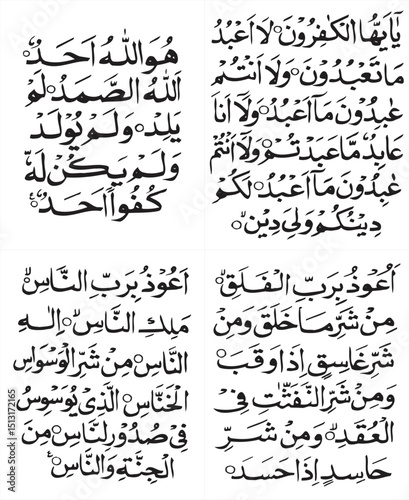 يٰٓاَيُّهَا الْكٰفِرُوْنَ ۙ○ لَآ اَعْبُدُ
مَا تَعْبُدُوْنَ ۙ○ وَلَآ اَنْتُمْ
عٰبِدُوْنَ مَآ اَعْبُدُ ۚ○ وَلَآ اَنَا
عَابِدٌ مَّا عَبَدْتُّمْ ۙ○ وَلَآ اَنْتُمْ
عٰبِدُوْنَ مَآ اَعْبُدُ ؕ○ لَكُمْ
دِيْنُكُمْ وَلِيَ دِيْنِ ○
هُوَ اللّٰهُ اَحَدٌ ۚ○
اَللّٰهُ الصَّمَدُ ۚ○ لَمْ
يَلِدْ ۙ○ وَلَمْ يُوْلَدْ
وَلَمْ يَكُنْ لَّهٗ
كُفُوًا اَحَدٌ ○
اَعُوْذُ بِرَبِّ الْفَلَقِ ۙ○
مِنْ شَرِّ مَا خَلَقَ ۙ○ وَمِنْ
شَرِّ غَاسِقٍ اِذَا وَقَبَ ۙ○
وَمِنْ شَرِّ النَّفّٰثٰتِ فِى
الْعُقَدِ ۙ○ وَمِنْ شَرِّ
حَاسِدٍ اِذَا حَسَدَ ○
اَعُوْذُ بِرَبِّ النَّاسِ ۙ○
مَلِكِ النَّاسِ ۙ○ اِلٰهِ
النَّاسِ ۙ○ مِنْ شَرِّ الْوَسْوَاسِ
الْخَنَّاسِ ۙ○ الَّذِيْ يُوَسْوِسُ
فِيْ صُدُوْرِ النَّاسِ ۙ○ مِنَ
الْجِنَّةِ وَالنَّاسِ ○
1513172165